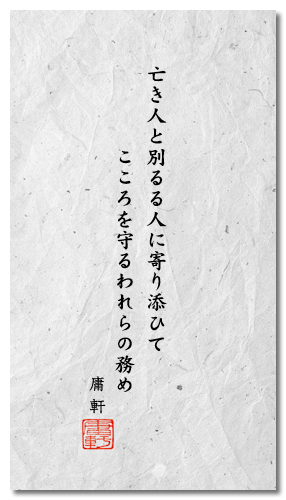 亡き人と別るる人に寄り添ひて
こころを守るわれらの務め
庸軒